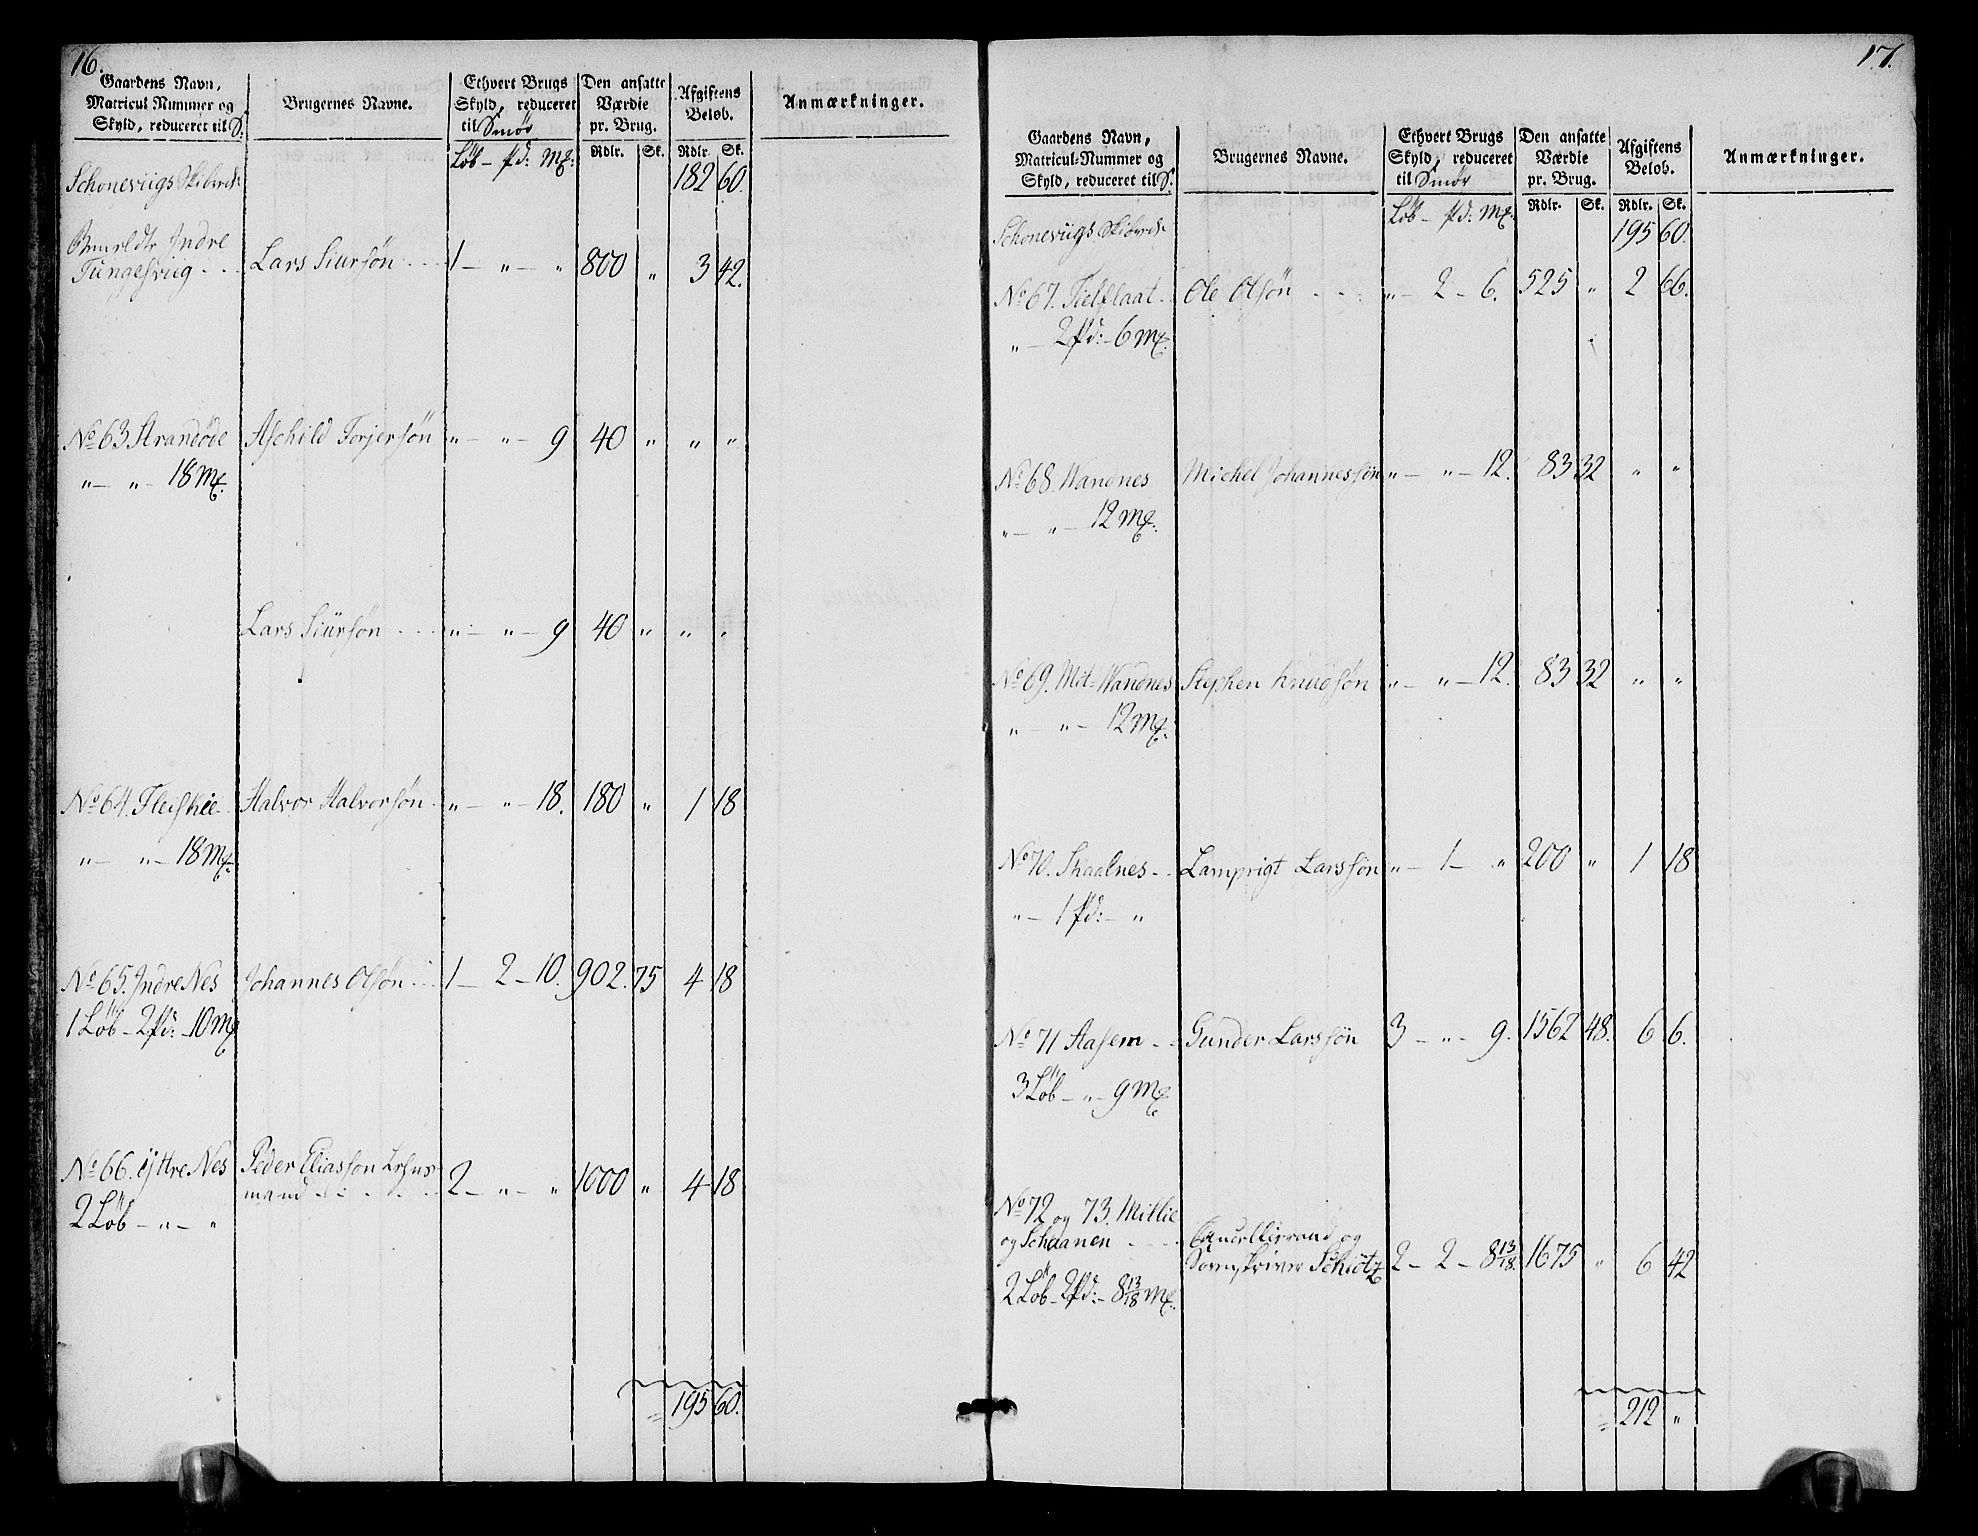 16.
Gaardens Navn,
Matricul Nummer og
Skyld, reduceret til S.
Brugernes Navne.
Ethvert Brugs
Skyld, reduceret
til Smør
Den ansatte
Værdie
pr. Brug.
Afgiftens
Beløb.
Anmærkninger.
Løb - Pd: Mk: Rdlr. Sk. Rdlr Sk.
Schoneviigs Skibrede 182 60.
Indre
Tungesviig . . Lars Siursøn . . . 1 - " - " 800 " 3 42.
No 63 Strandøde Aschild Torjersøn " - " - 9 40 " " "
" - " - 18 Mk.
Lars Siursøn . . . " - " - 9 40 " " "
No 64. Fleskie Halvor Halvorsøn . " - " - 18. 180 " 1 18
" - " - 18 Mk.
No 65. Indre Nes Johannes Olsøn . . . 1 - 2 - 10. 902. 75 4 18
1 Løb - 2 Pd: - 10 Mk
No 66. Yttre Nes Peder Eliassøn Lehns
mand . . . . . 2 - " - " 1000 " 4 18
2 Løb - " - "
195 60.
17.
Gaardens Navn,
Matricul-Nummer og
Skyld, reduceret til S.
Brugernes Navne.
Ethvert Brugs
Skyld, reduceret
til Smør
Den ansatte
Værdie
pr. Brug.
Afgiftens
Beløb.
Anmærkninger.
Løb - Pd: Mk. Rdlr. Sk. Rdlr. Sk.
Schoneviigs Skibrede 195 60.
No 67. Fielflaat . Ole Olsøn . . . " - 2 - 6. 525 " 2 66.
" - 2 Pd: - 6 Mk.
No 68. Wandnes Michel Johannessøn " - " - 12. 83 32 " "
" - " - 12 Mk.
No 69. Mit-Wandnes Stephen Knudsøn " - " - 12. 83 32 " "
" - " - 12 Mk.
No 70. Skaalnes . . Lamprigt Larssøn " - 1 - " 200 " 1 18
" - 1 Pd: - "
No 71 Aasem . . Gunder Larssøn 3 - " - 9. 1562 48. 6 6.
3 Løb - " - 9 Mk
No 72 og 73. Millie
og Schaanen . . . og
Sorenskriver Schiøtz 2 - 2 - 8 13/18. 1675 " 6 42
2 Løb - 2 Pd: - 8 13/18 Mk.
212 "